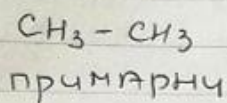 CH₃ - CH₃
примарни